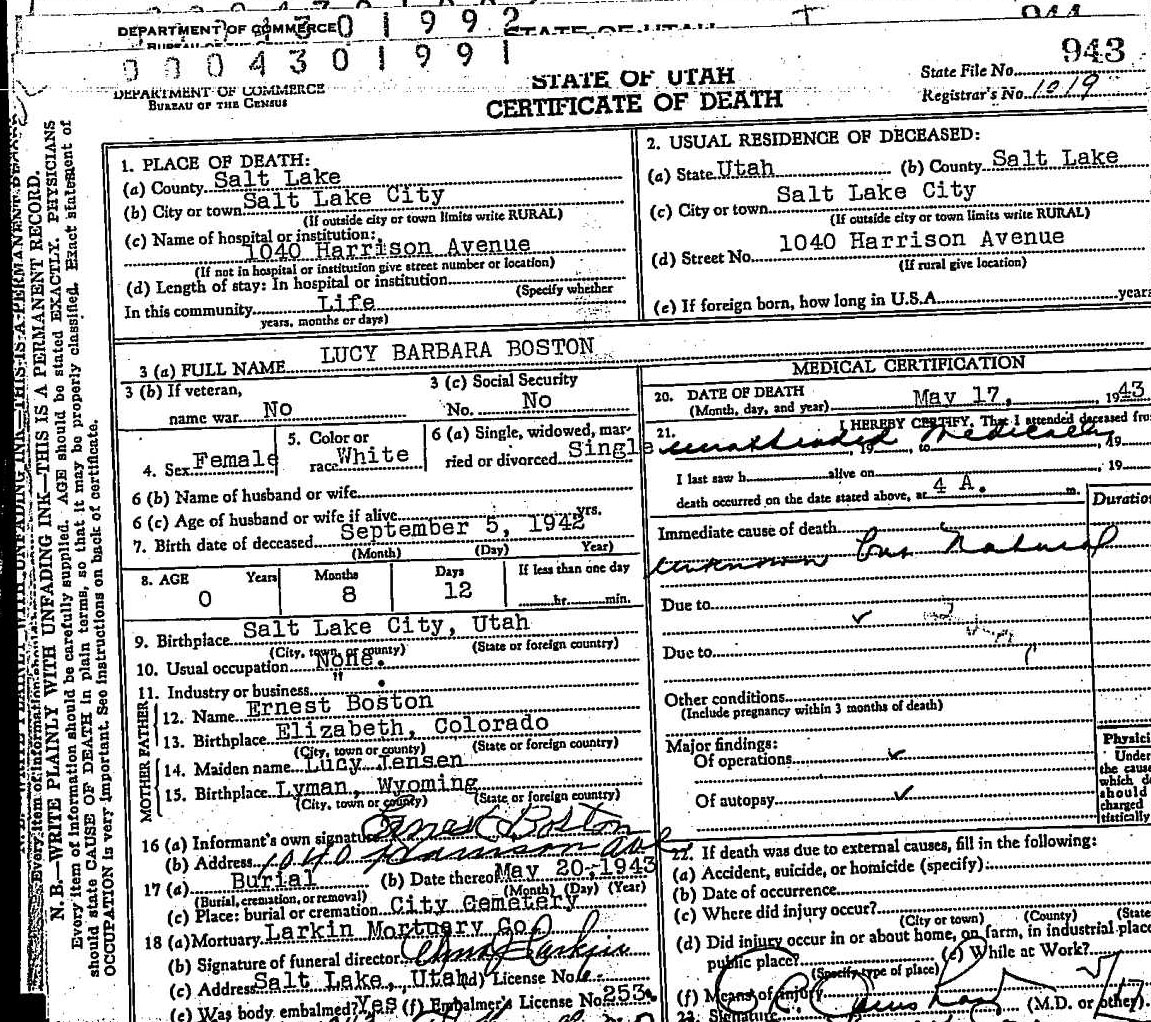 DEPARTMENT OF COMMERCE 0 1 9 9 2
STATE OF UTAH
944
0 0 0 4 3 0 1 9 9 1
DEPARTMENT OF COMMERCE
BUREAU OF THE CENSUS
STATE OF UTAH
CERTIFICATE OF DEATH
State File No. 943
Registrar's No. 1019
N. B.—WRITE PLAINLY WITH UNFADING INK—THIS IS A PERMANENT RECORD.
Every item of information should be carefully supplied. AGE should be stated EXACTLY. PHYSICIANS
should state CAUSE OF DEATH in plain terms, so that it may be properly classified. Exact statement of
OCCUPATION is very important. See instructions on back of certificate.
1. PLACE OF DEATH:
(a) County Salt Lake
(b) City or town Salt Lake City
(If outside city or town limits write RURAL)
(c) Name of hospital or institution:
1040 Harrison Avenue
(If not in hospital or institution give street number or location)
(d) Length of stay: In hospital or institution
(Specify whether
In this community Life
years, months or days)
2. USUAL RESIDENCE OF DECEASED:
(a) State Utah (b) County Salt Lake
(c) City or town Salt Lake City
(If outside city or town limits write RURAL)
(d) Street No. 1040 Harrison Avenue
(If rural give location)
(e) If foreign born, how long in U.S.A. years
3 (a) FULL NAME LUCY BARBARA BOSTON
3 (b) If veteran,
name war No
3 (c) Social Security
No. No
4. Sex Female
5. Color or
race White
6 (a) Single, widowed, mar-
ried or divorced Single
6 (b) Name of husband or wife
6 (c) Age of husband or wife if alive yrs.
7. Birth date of deceased September 5, 1942
(Month) (Day) Year)
8. AGE Years Months Days If less than one day
0 8 12 hr. min.
9. Birthplace Salt Lake City, Utah
(City, town, or county) (State or foreign country)
10. Usual occupation None.
11. Industry or business "
FATHER
12. Name Ernest Boston
13. Birthplace Elizabeth, Colorado
(City, town or county) (State or foreign country)
MOTHER
14. Maiden name Lucy Jensen
15. Birthplace Lyman, Wyoming
(City, town or county) (State or foreign country)
16 (a) Informant's own signature Ernest Boston
(b) Address 1040 Harrison Ave
17 (a) Burial (b) Date thereof May 20, 1943
(Burial, cremation, or removal) (Month) (Day) (Year)
(c) Place: burial or cremation City Cemetery
18 (a) Mortuary Larkin Mortuary Co.
(b) Signature of funeral director Larkin
(c) Address Salt Lake, Utah (d) License No.
(e) Was body embalmed? Yes (f) Embalmer's License No. 253
MEDICAL CERTIFICATION
20. DATE OF DEATH
(Month, day, and year) May 17, 1943
21. I HEREBY CERTIFY, That I attended deceased from
unattended medically 19 to , 19
I last saw h alive on , 19
death occurred on the date stated above, at 4 A. m.
Duration
Immediate cause of death
unknown but Natural
Due to
Due to
Other conditions
(Include pregnancy within 3 months of death)
Major findings:
Of operations
Of autopsy
Physici
Under
the cause
which de
should
charged
tistically
22. If death was due to external causes, fill in the following:
(a) Accident, suicide, or homicide (specify):
(b) Date of occurrence
(c) Where did injury occur?
(City or town) (County) (State
(d) Did injury occur in or about home, on farm, in industrial place
public place? (e) While at Work?
(Specify type of place)
(f) Means of injury
23. Signature (M.D. or other).